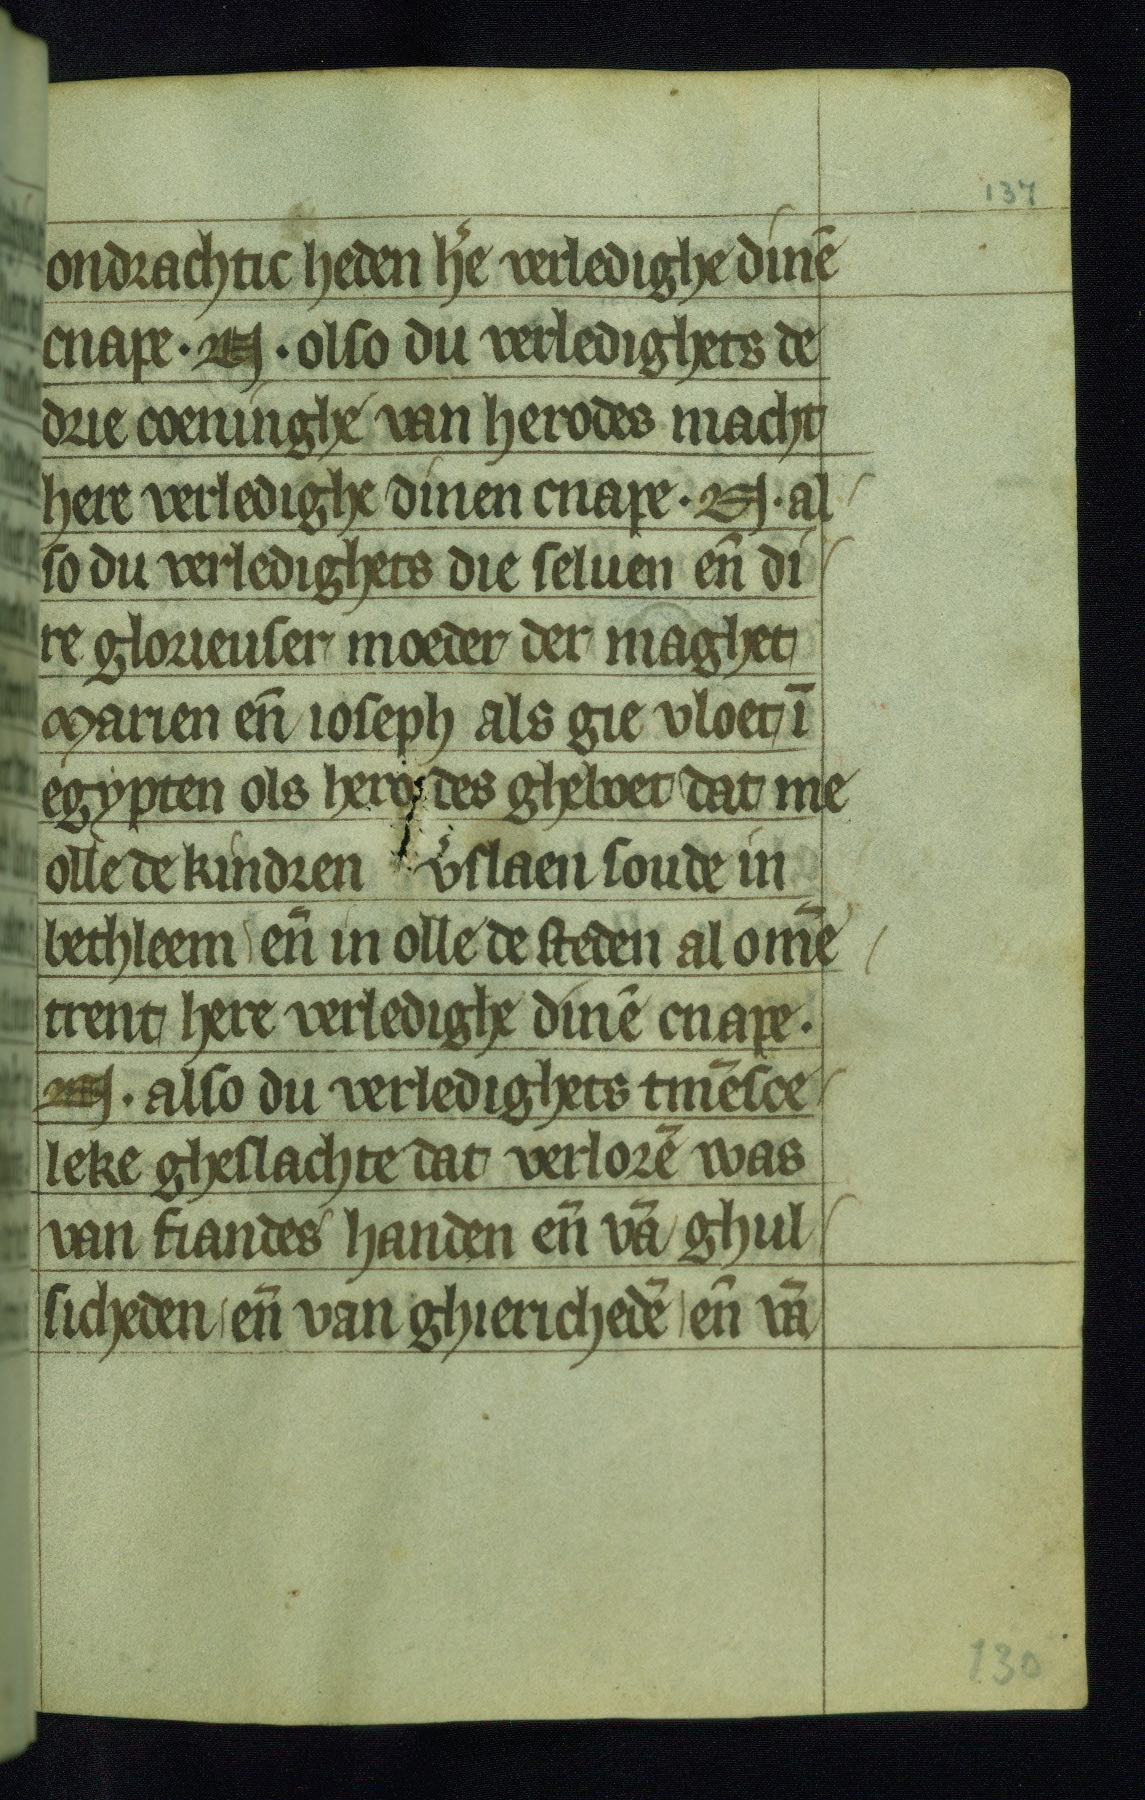 137
ondrachtic heden h̾e verledighe dinē
cnape · N · olso du verledighets de
drie coeninghe van herodes macht
here verledighe dinen cnape · N · al
so du verledighets die seluen en̄ di
re glorieuser moeder der maghet
Marien en̄ ioseph als gie vloet ī
egypten ols herodes gheboet dat me
olle de kindren v̾slaen soude in
bethleem en̄ in olle de steden al om̄e
trent here verledighe dinē cnape ·
N · also du verledighets tmēsce
leke gheslachte dat verlorē was
van fiandes handen en̄ vā ghul
sicheden en̄ van ghierichedē en̄ vā
130